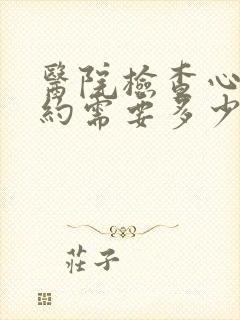 醫院檢查心
約需要多少
莊子